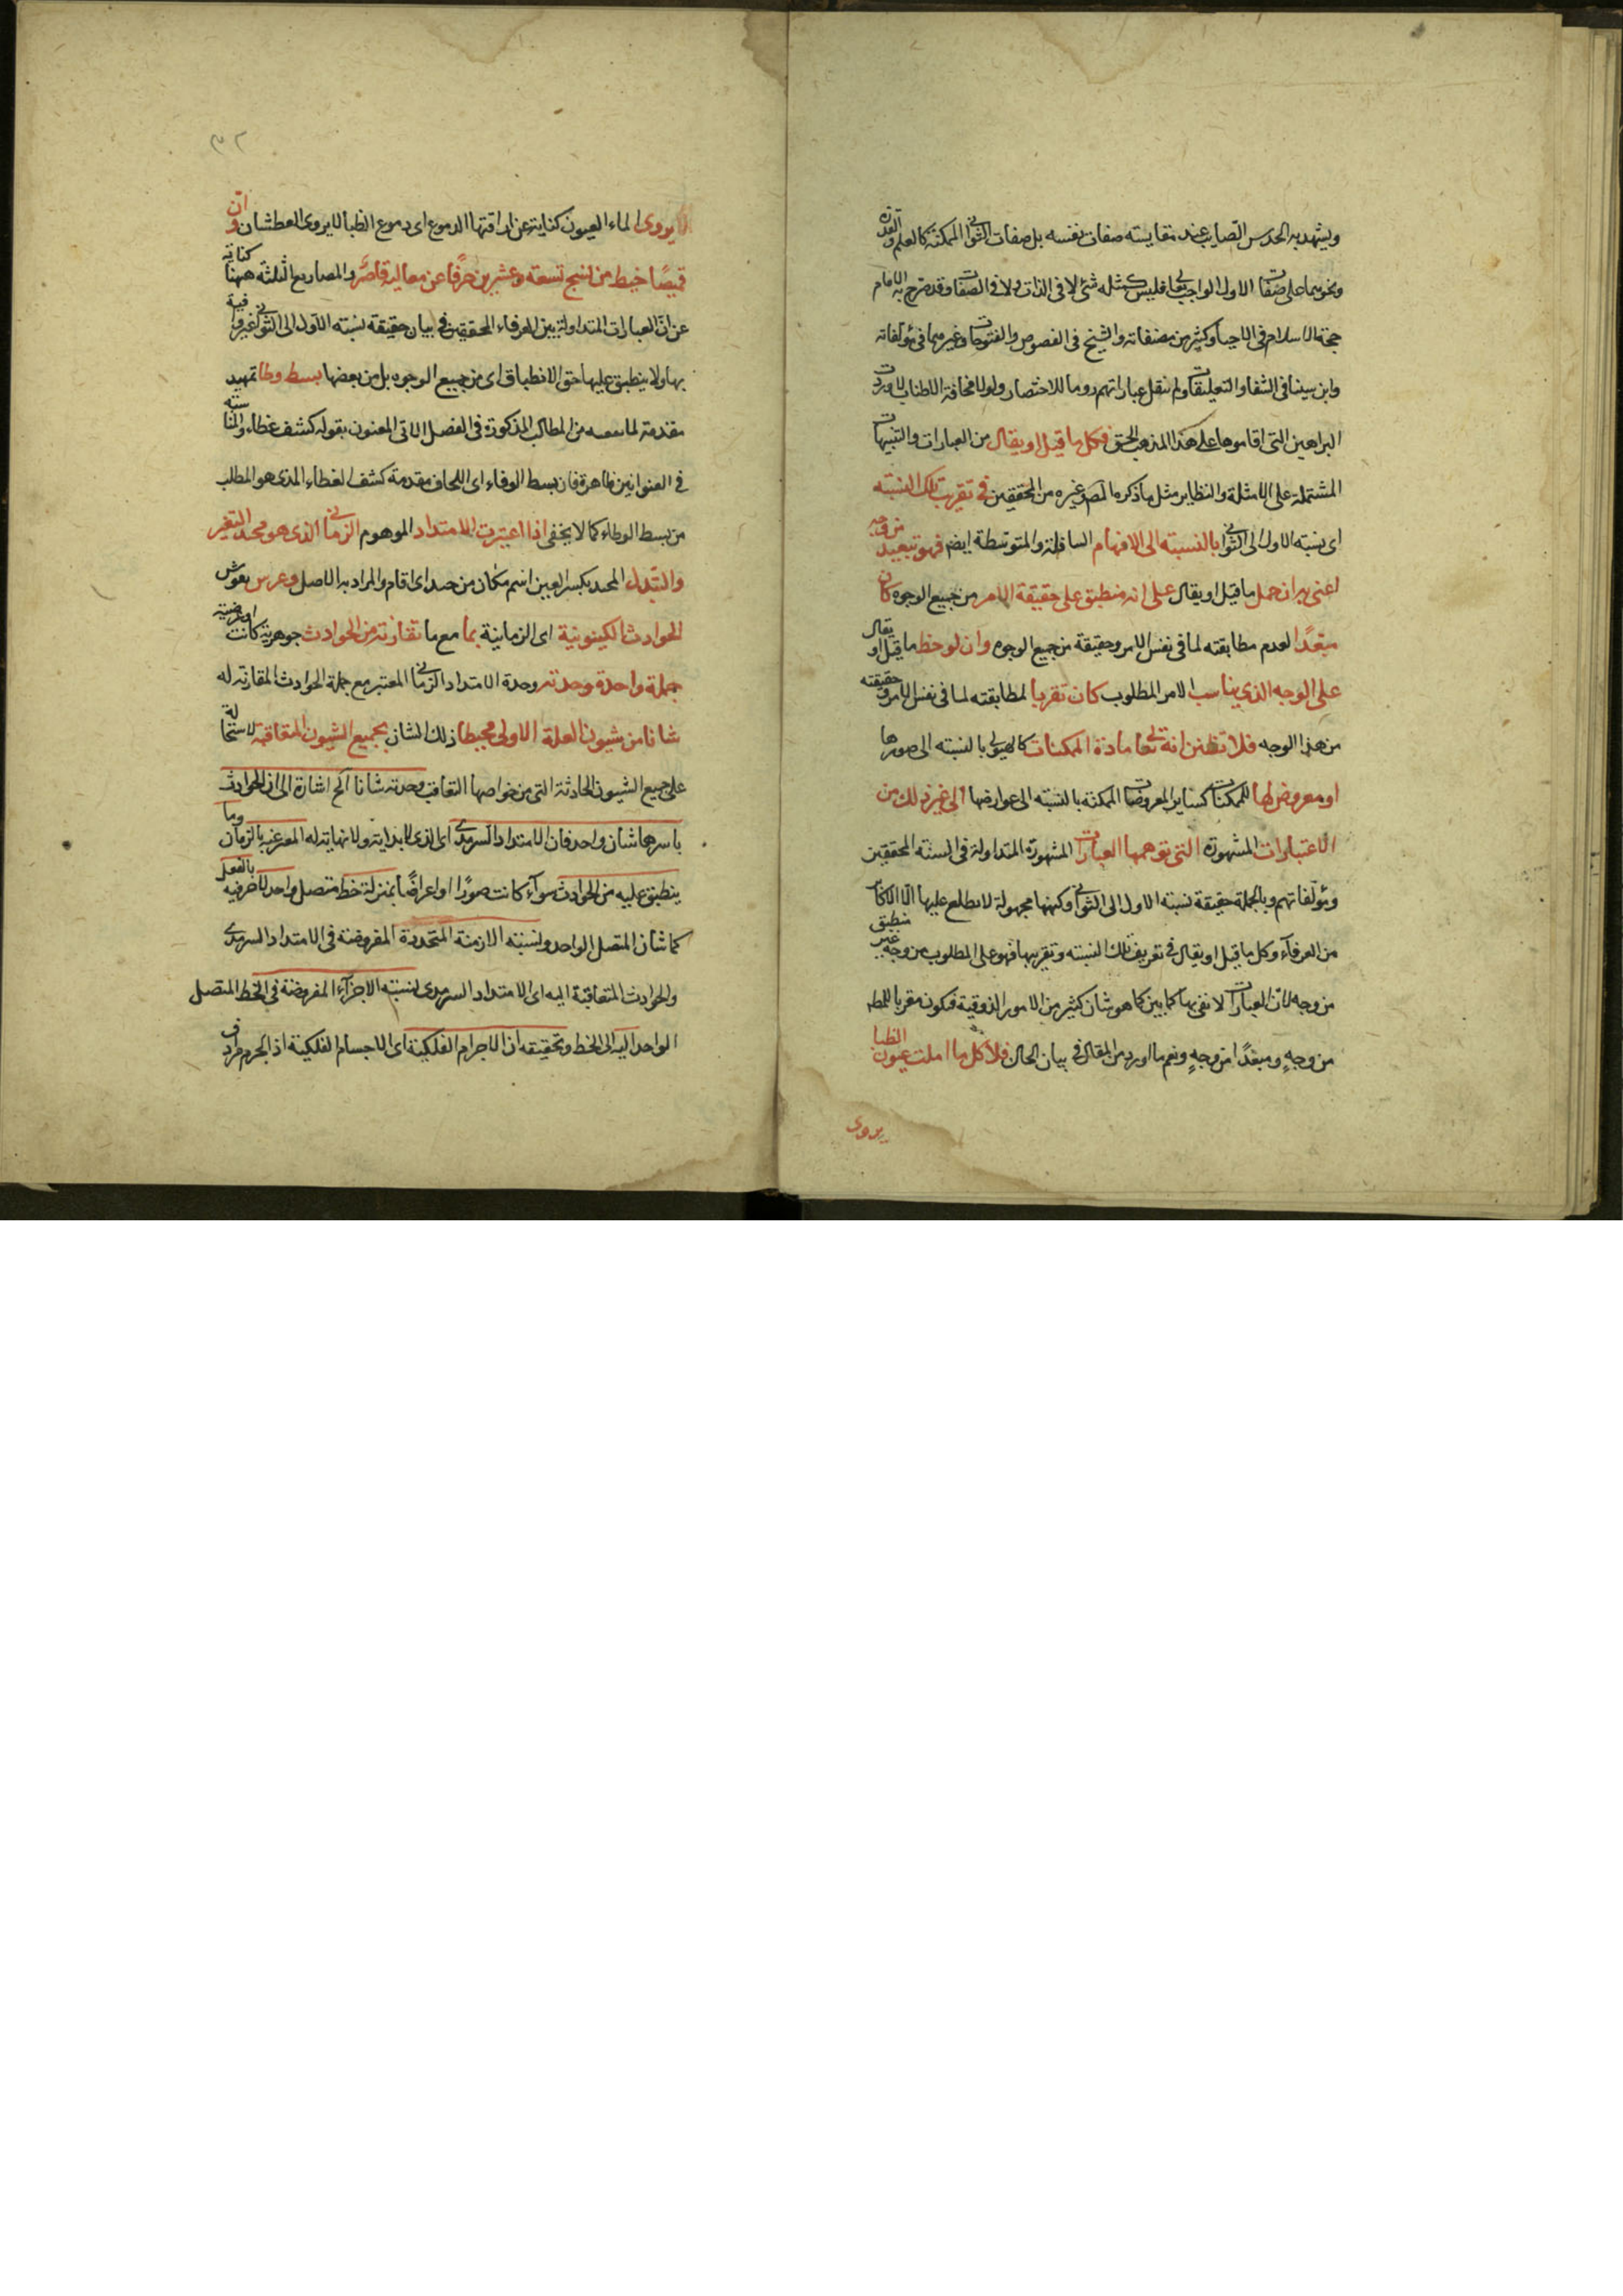 ويشهد به الحدس الصايب عند مقايسته صفات نفسه بل صفات الثواني الممكنة كالعلم والقدرة
ونحوهما على صفات الاول الواجب تعالى فليس كمثله شئ لا في الذات ولا في الصفات وقد صرح به الامام
حجة الاسلام في الاحيا وكثير من مصنفاته والشيخ في الفصوص والفتوحات وغيرهما في مؤلفاته
وابن سينا في الشفا والتعليقات ولم ننقل عباراتهم روما للاختصار ولولا مخافة الاطناب لاوردت
البراهين التي اقاموها على هذا المذهب الحق فكل ما قيل او يقال من العبارات والتنبيهات
المشتملة على الامثلة والنظاير مثل ما ذكره المص وغيره من المحققين في تقريب تلك النسبته
اي نسبته الاول الى الثواني بالنسبته الى الافهام السافلة والمتوسطة ايضم فهو تبعيد من وجه
اعني به ان حمل ما قيل او يقال على انه منطبق على حقيقة الامر من جميع الوجوه كان
مبعدا لعدم مطابقته لما في نفس الامر وحقيقة من جميع الوجوه وان لوحظ ما قيل او يقال
على الوجه الذي يناسب الامر المطلوب كان تقريبا لمطابقته لما في نفس الامر وحقيقته
من هذا الوجه فلا تظنن انه تعالى مادة الممكنات كالهيولي بالنسبته الى صورها
او معروض لها للممكنات كساير المعروضات الممكنة بالنسبته الى عوارضها الى غير ذلك من
الاعتبارات المشهورة التي توهمها العبارات المشهورة المتداولة في السنة المحققين
ومؤلفاتهم وبالجملة حقيقة نسبته الاول الى الثواني وكنهها مجهولة لا يطلع عليها الا الاكابر
من العرفاء وكل ما قيل او يقال في تعريف تلك النسبته وتقريبها فهو على المطلوب من وجه غير منطبق
من وجه لان العبارات لا تفي بها كما بين كما هو شان كثير من الامور الذوقية فيكون مقربا للمط
من وجهٍ ومبعدًا من وجهٍ ونعم ما اورد من المقال في بيان الحال فلا كل ما املت عيون الظبا
يروى
٣٢
يروى الماء العيون كناية عن اراقتها الدموع اي دموع الظبا لا يروى العطشان ولا ان
قميصًا خيط من نسج تسعة وعشرين حرفًا عن معاليه قاصر والمصاريع الثلثة ههنا كناية
عن ان العبارات المتداولة بين العرفاء المحققين في بيان حقيقة نسبته الاول الى الثواني غير وافية
بها ولا ينطبق عليها حق الانطباق اي من جميع الوجوه بل من بعضها بسط وطا تمهيد
مقدمة لما من المطالب المذكورة في الفصل الاتي المعنون بقوله كشف غطاء والمناسبته
في العنوانين ظاهرة فان بسط اي اللحاف مقدمة كشف الغطاء الذي هو المطلب
من بسط الوطاء كما لا يخفى اذا اعتبرت الامتداد الموهوم الزماني الذي هو محتد التغير
والتبدل المحتد بكسر العين اسم مكان من اي اقام والمراد به الاصل وعرس
الحوادث الكينونية اي الزمانية بما مع ما تقارنه من الحوادث جوهرية كانت او عرضية
جملة واحدة وجدته وحدة الامتداد الزماني المعتبر مع جملة الحوادث المقارنة له
شانا من شيون العلة الاولى محيطا ذلك الشان بجميع الشيون المتعاقبة لاشتماله
على جميع الشيون الحادثة التي من خواصها التعاقب وحدته شانا الخ اشارة الى ان الحوادث
باسرها شان واحد فان الامتداد السرمدي اي الذي لا بداية ولا نهاية له المعبر عنه بالزمان وما
ينطبق عليه من الحوادث سوآء كانت صورًا او اعراضًا بمنزلة خط متصل واحد لا جزء فيه بالفعل
كما شان المتصل الواحد ونسبته الازمنة المتجددة المفروضة في الامتداد السرمدي
والحوادث المتعاقبة اليه اي الامتداد السرمدي نسبته الاجزآء المفروضة في الخط المتصل
الواحد اليه الى الخط وتحقيقه ان الاجرام الفلكية اي الاجسام الفلكية اذ الجرم